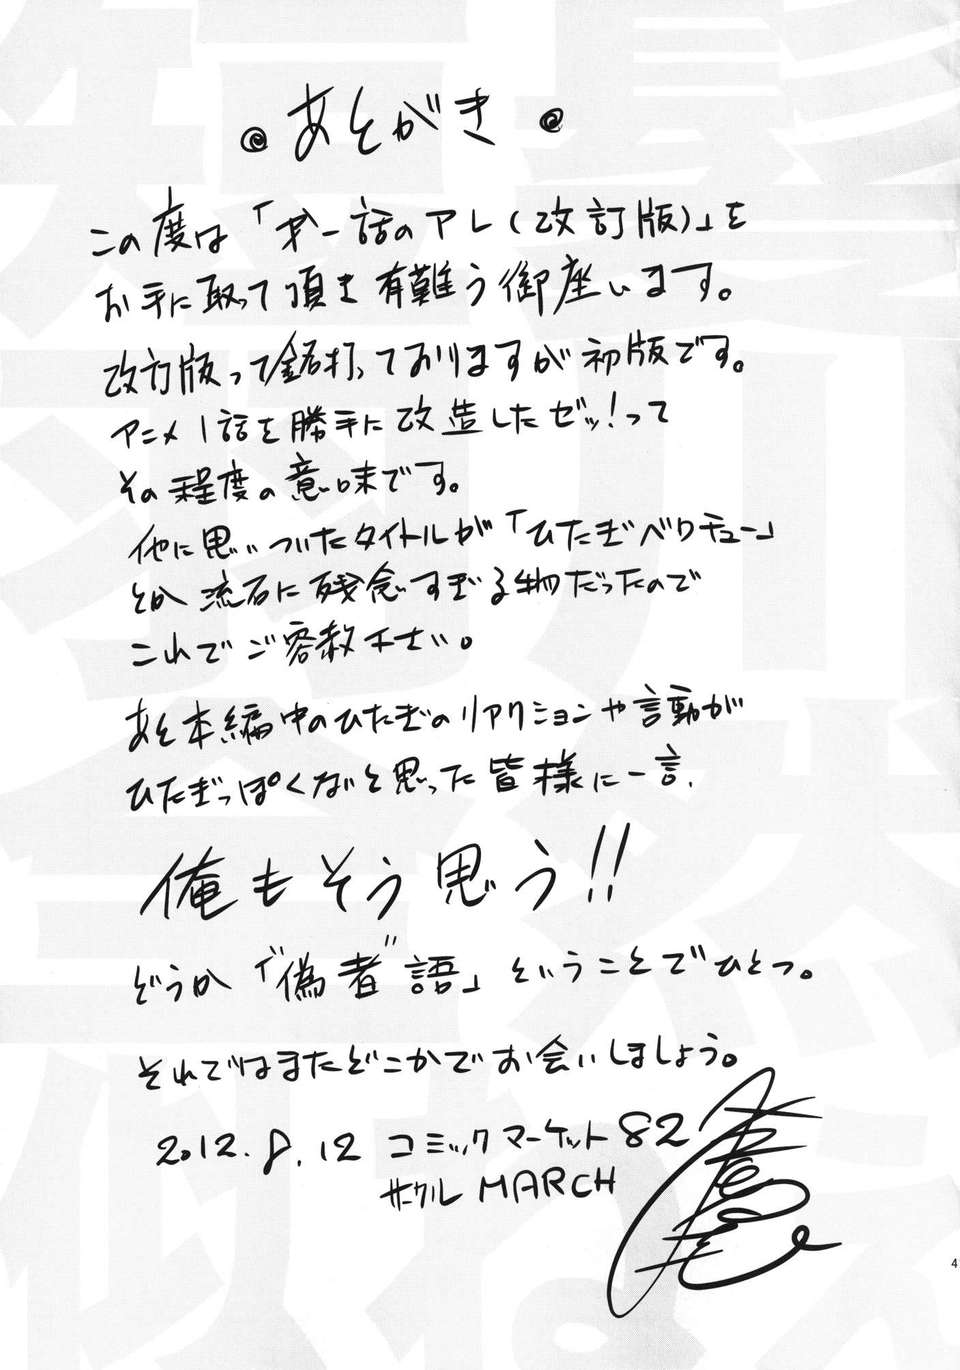 あとがき
この度は「才一話のアレ(改訂版)」を
お手に取って頂き有難う御座います。
改訂版って銘打っておりますが初版です。
アニメ1話を勝手に改造したぜッ!って
その程度の意味です。
他に思いついたタイトルが「ひたぎベクチュー」
とか流石に残念すぎる物だったので
これでご容赦下さい。
あと本編中のひたぎのリアクションや言動が
ひたぎっぽくないと思った皆様に一言.
俺もそう思う!!
どうか「"偽者"語」ということでひとつ。
それではまたどこかでお会いしましょう。
2012.8.12 コミックマーケット82
サークル MARCH
4